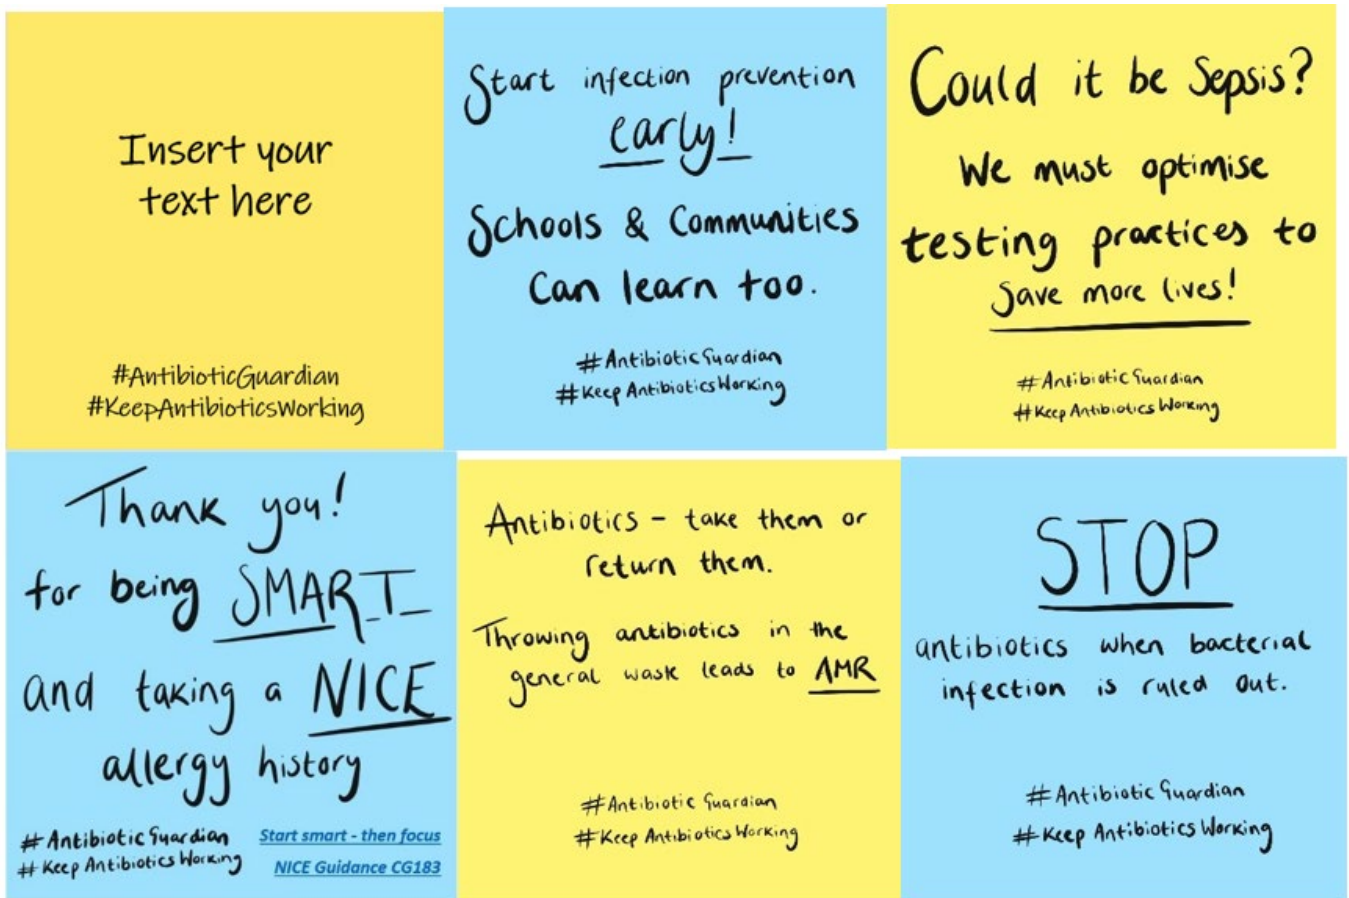 Insert your
text here
#AntibioticGuardian
#KeepAntibioticsWorking
Start infection prevention
early!
Schools & Communities
Can learn too.
#AntibioticGuardian
#KeepAntibioticsWorking
Could it be Sepsis?
We must optimise
testing practices to
save more lives!
#AntibioticGuardian
#KeepAntibioticsWorking
Thank you!
for being SMART
and taking a NICE
allergy history
#AntibioticGuardian
#KeepAntibioticsWorking
Start smart - then focus
NICE Guidance CG183
Antibiotics - take them or
return them.
Throwing antibiotics in the
general waste leads to AMR
#AntibioticGuardian
#KeepAntibioticsWorking
STOP
antibiotics when bacterial
infection is ruled out.
#AntibioticGuardian
#KeepAntibioticsWorking